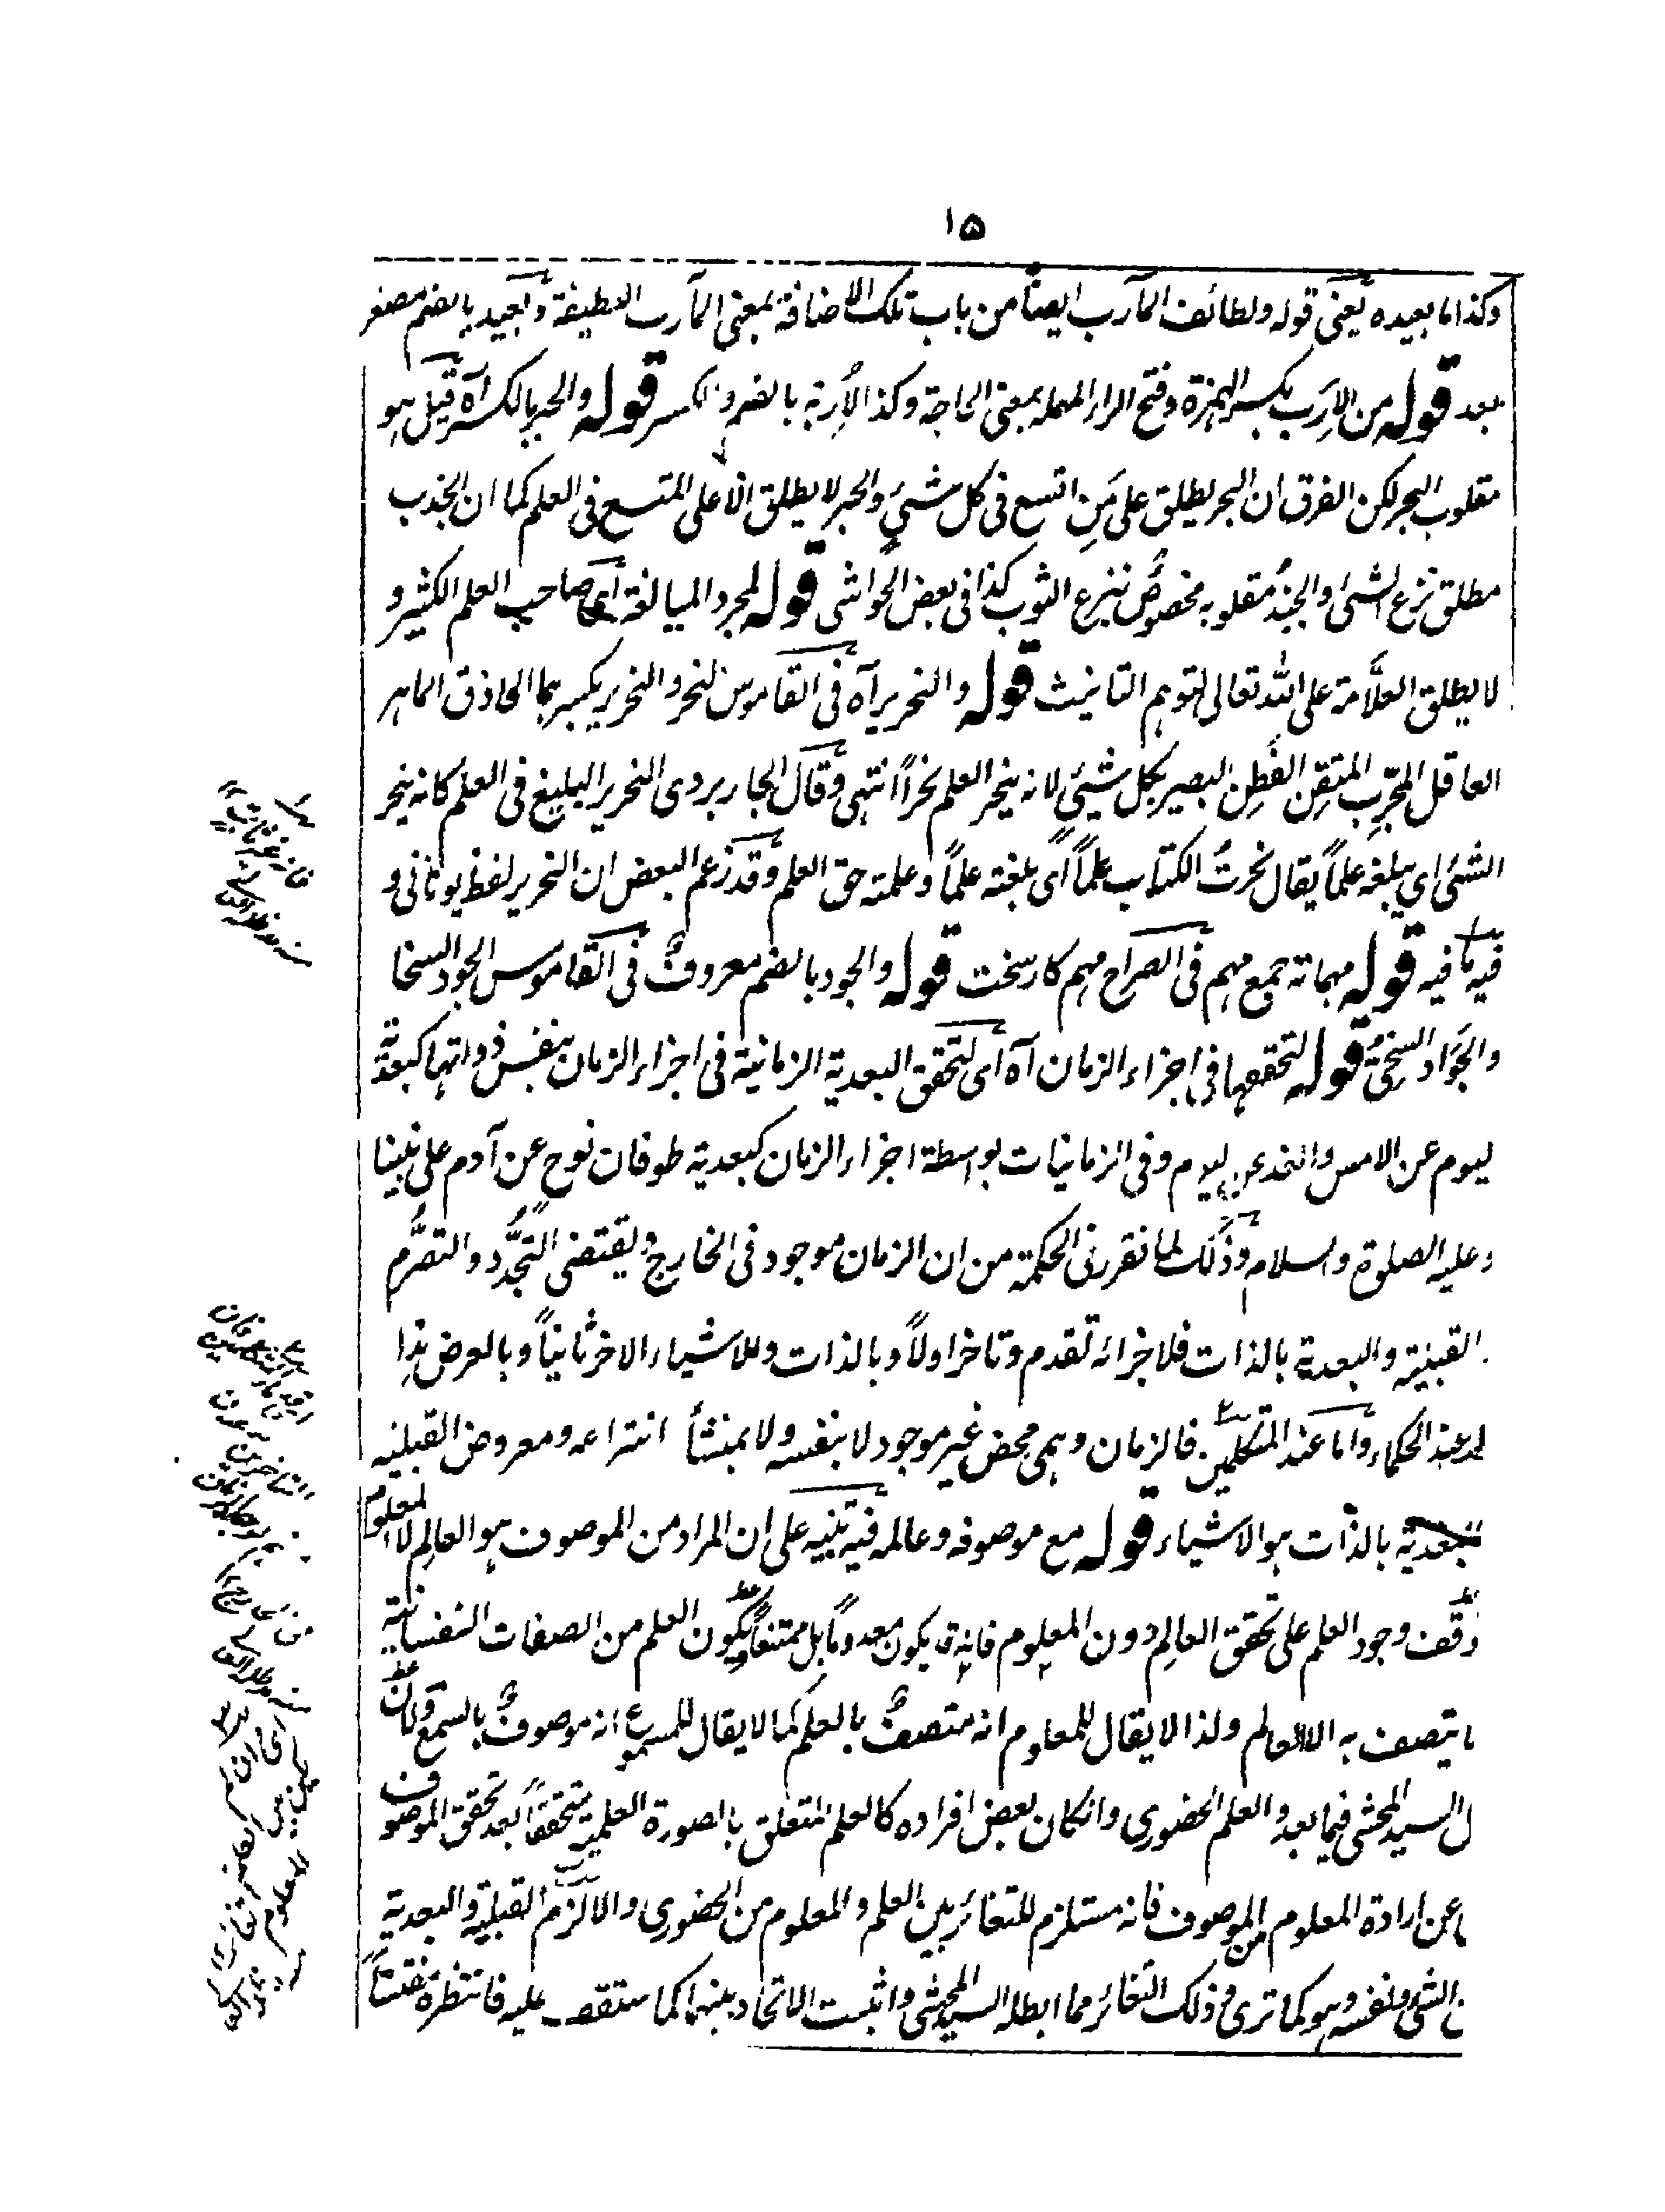 ۱۵
وكذا ما بعيده يعنى قوله ولطائف المآرب ايضاً من باب تلك الاضافة بمعنى المآرب اللطيفة وبُعيد بالضم مصغر
بعد قوله من الاِرَب بكسر الهمزة وفتح الراء المهملة بمعنى الحاجة وكذا الأربة بالضم والكسر قوله والحبر بالكسر آه قيل هو
مقلوب البحر لكن الفرق ان البحر يطلق على مَنِ اتسع فى كل شئ والحبر لا يطلق الا على المتسع فى العلم كما ان الجذب
مطلق نزع الشئ والجبذُ مقلوبه مخصوصٌ بنزع الثوب كذا فى بعض الحواشى قوله لمجرد المبالغة اى صاحب العلم الكثير و
لا يطلق العلّامة على الله تعالى لتوهم التانيث قوله والنحرير آه فى القاموس النحر والنحرير بكسرهما الحاذق الماهر
العاقل المجرِّب المتقِن الفَطِن البصير بكل شئ لانه ينحر العلم نحراً انتهى وقال الجاربردى النحرير البليغ فى العلم كانه ينحر
الشئ اى يبلغه علماً يقال نحرتُ الكتاب علماً اى بلغته علماً وعلمته حق العلم وقد زعم البعض ان النحرير لفظ يونانى و
فيه ما فيه قوله مهماته جمع مهم فى الصراح مهم كار سخت قوله والجود بالضم معروفٌ فى القاموس الجود السخا
والجَوَاد السخىُّ قوله لتحققها فى اجزاء الزمان آه اى لتحقق البعدية الزمانية فى اجزاء الزمان بنفس ذواتها كبعدية
ليوم عن الامس والغد عن ليوم وفى الزمانيات بواسطة اجزاء الزمان كبعدية طوفان نوح عن آدم على نبينا
وعليه الصلوة والسلام وذلك لما تقرر فى الحكمة من ان الزمان موجود فى الخارج ويقتضى التجدُّد والتصرُّم
القبلية والبعدية بالذات فلاجزائه تقدم وتاخر اولاً وبالذات وللاشياء الاخر ثانياً وبالعرض هذا
عند الحكماء واما عند المتكلمين فالزمان وهمى محض غير موجود لا بنفسه ولا بمنشأ انتزاعه ومعروض القبلية
البعدية بالذات هو الاشياء قوله مع موصوفه وعالمه فيه تنبيه على ان المراد من الموصوف هو العالِم لا المعلوم
وقف وجود العلم على تحقق العالِم دون المعلوم فانه قد يكون معدوماً بل ممتنعاً ولكون العلم من الصفات النفسانية
يتصف به الا العالم ولذا لا يقال للمعلوم انه متصفٌ بالعلم كما لا يقال للمسموع انه موصوفٌ بالسمع ولان
ل السيد المحشى فيما بعد والعلم الحضورى وانكان بعض افراده كالعلم المتعلق بالصورة العلمية متحققاً بعد تحقق الموصوف
عن ارادة المعلوم من الموصوف فانه مستلزم للتغائر بين العلم والمعلوم من الحضورى والا لزم القبلية والبعدية
ن الشئ ونفسه وهو كما ترى وذلك التغائر مما ابطله السيد المحشى واثبت الاتحاد بينهما كما ستقف عليه فانتظره مفتشاً